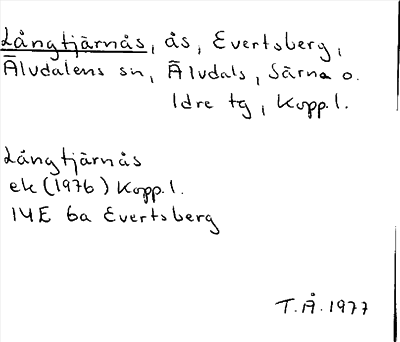 Långtjärnås, ås, Evertsberg,
Älvdalens sn, Älvdals, Särna o.
Idre tg, Kopp.l.
Långtjärnås
ek (1976) Kopp.l.
14E 6a Evertsberg
T.Å. 1977